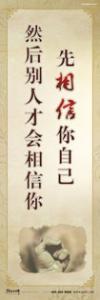 先相信你自己
然后别人才会相信你